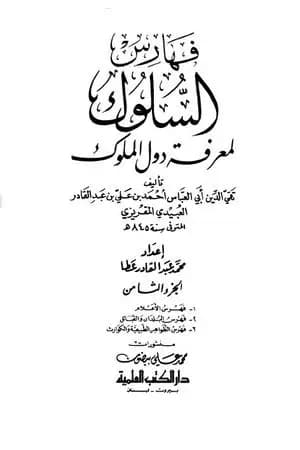 فهارس
السلوك
لمعرفة دول الملوك
تأليف
تقي الدين أبي العباس أحمد بن علي بن عبد القادر
العبيدي المقريزي
المتوفى سنة ٨٤٥ هـ
إعداد
محمد عبد القادر عطا
الجزء الثامن
١- فهرس الأعلام
٢- فهرس البلدان والقبائل
٣- فهرس الظواهر الطبيعية والكوارث
منشورات
محمد علي بيضون
دار الكتب العلمية
بيروت - لبنان